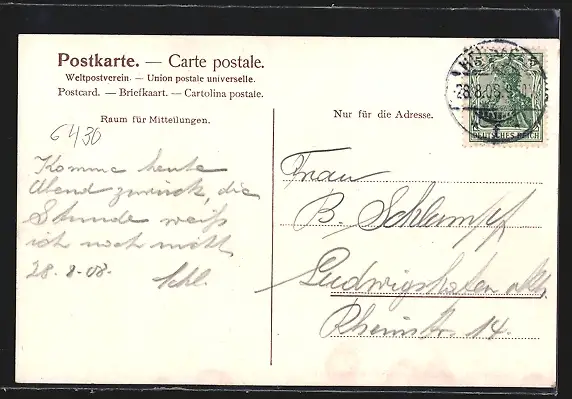 Postkarte. — Carte postale.
Weltpostverein. — Union postale universelle.
Postcard. — Briefkaart. — Cartolina postale.
Raum für Mitteilungen.
Nur für die Adresse.
6430
Komme heute
Abend zurück, die
Stunde weiß
ich noch nicht
28.8.08. Schl.
Frau
B. Schlumpf
Ludwigshafen a/Rh.
Rheinstr. 14.
28.8.08
DEUTSCHES REICH